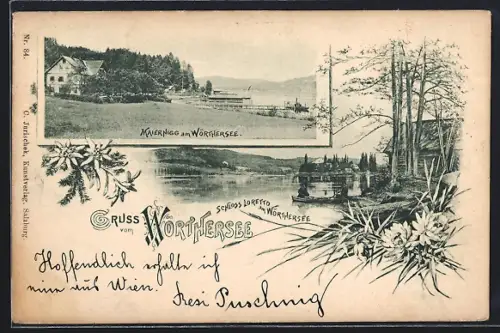 Nr. 84.
C. Jurischek, Kunstverlag, Salzburg
MAIERNIGG AM WÖRTHERSEE.
SCHLOSS LORETTO
AM WÖRTHERSEE
GRUSS
VOM
WÖRTHERSEE
Hoffentlich erhalte ich
eine aus Wien. Resi Puschnig